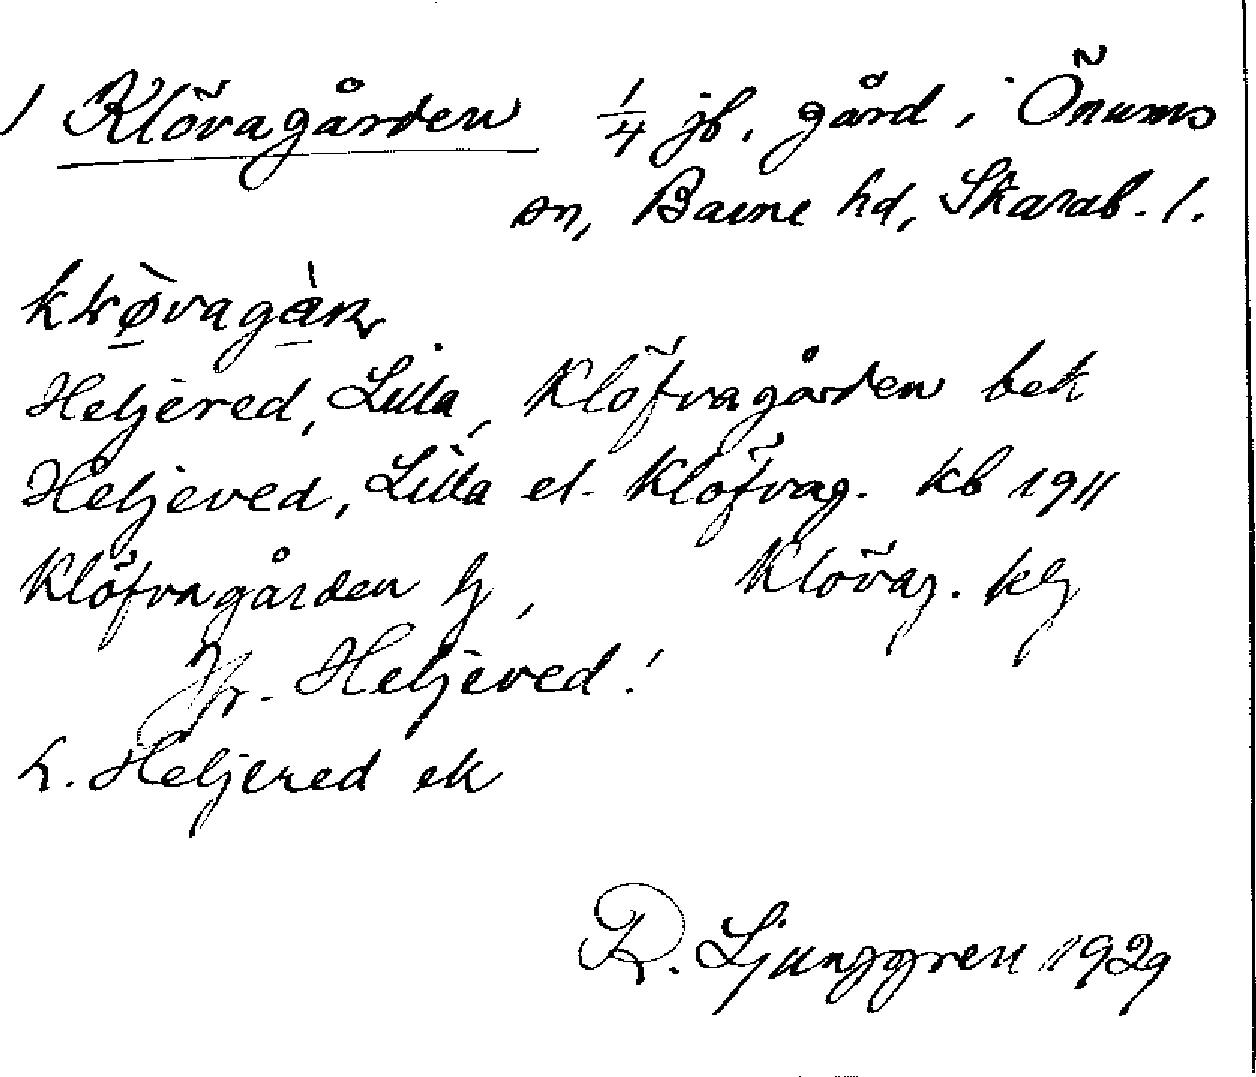 1 Klövagården 1/4 jb. gård i Önums
sn, Barne hd, Skarab. l.
Heljered, Lilla, Klöfvagården bek
Heljered, Lilla el. Klöfvag. kb 1911
Klöfvagården hj, Klövag. klj
Jfr. Heljered!
L. Heljered ek
R. Ljunggren 1929